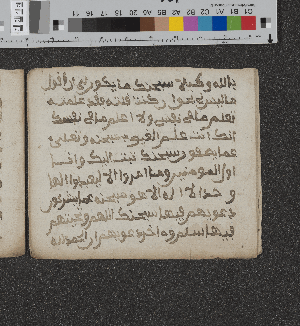 بالله وكيلا سبحنك ما يكون لي ان اقول
ما ليس لي بحق ان كنت قلته فقد علمته
تعلم ما في نفسي ولا اعلم ما في نفسك
انك انت علم الغيوب سبحنه وتعلى
عما يصفون سبحنك تبت اليك وانا
اول المومنين وما امروا الا ليعبدوا الها
وحدا لا اله الا هو سبحنه عما يشركون
دعويهم فيها سبحنك اللهم وتحيتهم
فيها سلم وءاخر دعويهم ان الحمد لله